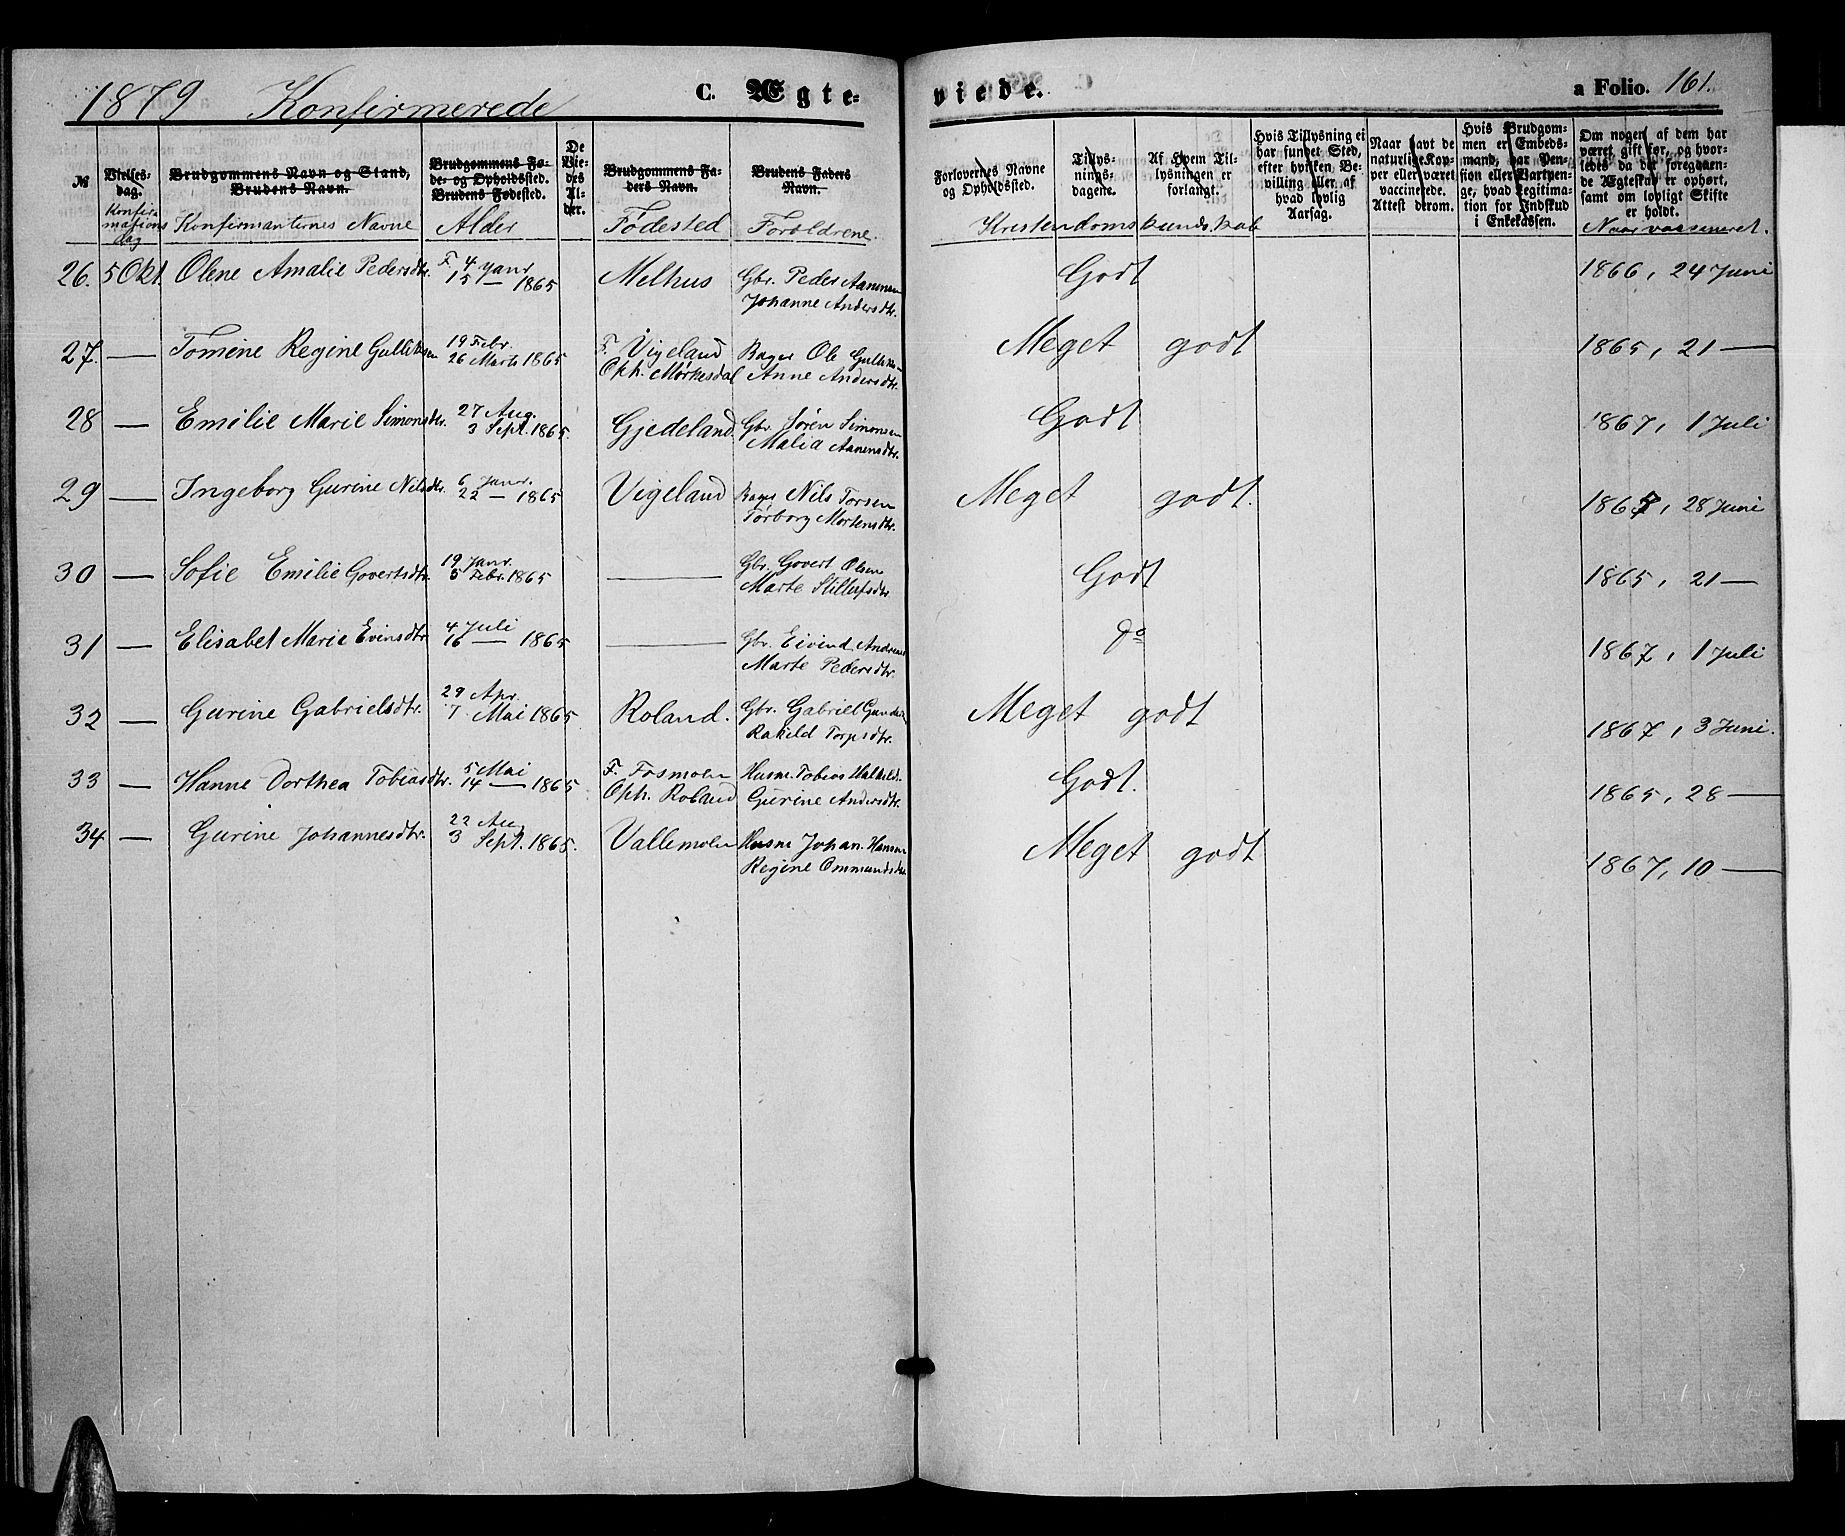 1879 Konfirmerede C. Ægte= viede. a Folio. 161.
№
Vielses-
dag.
Konfir-
mations
dag
Brudgommens Navn og Stand,
Brudens Navn.
Konfirmanternes Navne
Brudgommens Fø-
de- og Opholdssted.
Brudens Fødested.
Alder
De
Vie-
des
Al-
der.
Brudgommens Fa-
ders Navn.
Fødested
Brudens Faders
Navn.
Foroldrene.
Forlovernes Navne
og Opholdssted.
Tillys-
nings-
dagene.
Af Hvem Til-
lysningen er
forlangt.
Kristendomskundskab
Hvis Tillysning ei
har fundet Sted,
efter hvilken Be-
villing eller af
hvad lovlig
Aarsag.
Naar havt de
naturlige Kop-
per eller været
vaccinerede.
Attest derom.
Hvis Brudgom-
men er Embeds-
mand, har Pen-
sion eller Vartpen-
ge, hvad Legitima-
tion for Indskud
i Enkekassen.
Om nogen af dem har
været gift før, og hvor-
ledes da det foregaaen-
de Ægteskab er ophørt,
samt om lovligt Skifte
er holdt.
Naar vaccineret.
26. 5 Okt. Olene Amalie Pedersdtr. F. 4 Janr. Melhus Gbr. Peder Aanensen Godt 1866, 24 Juni
15 — 1865 Johanne Andersdtr.
27. — Tomine Regine Gulliksen 19 Febr. F. Vigeland Ole Gulliks- Meget godt 1865, 21 —
26 Marts 1865 Oph. Mørkesdal Anne Andersdtr.
28 — Emilie Marie Simonsdtr. 27 Aug. Gjedeland. Gbr. Søren Simonsen Godt 1867, 1 Juli
3 Sept. 1865. Malia Aanensdtr.
29 — Ingeborg Gurine Nilsdtr. 6 Janr. Vigeland Nils Torsen Meget godt. 1867, 28 Juni
22 — 1865 Torborg Mortensdtr.
30 — Sofie Emilie Govertsdtr. 19 Janr. — Gbr. Govert Olsen Godt 1865, 21 —
5 Febr. 1865 Marte Stillufsdtr.
31 — Elisabet Marie Evinsdtr. 4 Juli — Gbr. Eivind Andreas do 1867, 1 Juli
16 — 1865 Marte Pedersdtr.
32 — Gurine Gabrielsdtr. 29 Apr. Roland. Gbr. Gabriel Meget godt 1867, 3 Juni.
7 Mai 1865 Rakild Torjusdtr.
33 — Hanne Dorthea Tobiasdtr. 5 Mai F. Fosmoen Husm. Tobias Godt. 1865, 28 —
14 — 1865 Oph. Roland Gurine Andersdtr.
34 — Gurine Johannesdtr. 22 Aug. Vallemoen Husm Johan. Hansen Meget godt 1867, 10 —
3 Sept. 1865. Regine Ommundsdtr